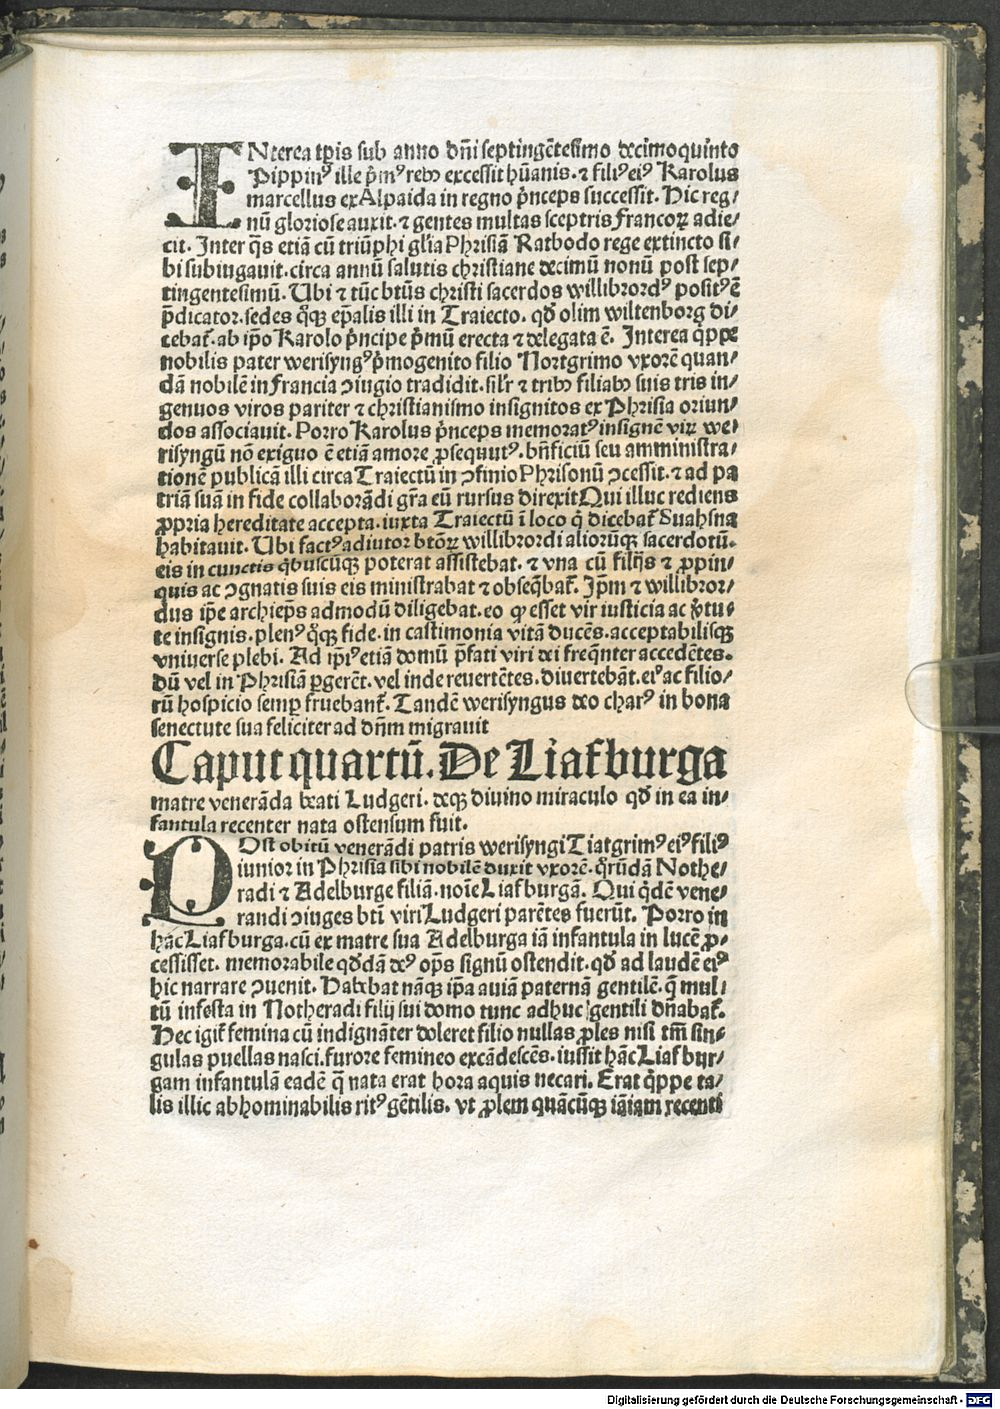 INterea tp̄is sub anno dn̄i septingētesimo decimoquinto
Pippinꝰ ille p̄mꝰ rebꝫ excessit hūanis. ⁊ filiꝰ eiꝰ Karolus
marcellus ex Alpaida in regno p̄nceps successit. Hic reg⸗
nū gloriose auxit. ⁊ gentes multas sceptris francoꝝ adie⸗
cit. Inter q̄s etiā cū triūphi gl̄ia Phrisiā Ratbodo rege extincto si⸗
bi subiugauit. circa annū salutis christiane decimū nonū post sep⸗
tingentesimū. Ubi ⁊ tūc btūs christi sacerdos willibrordꝰ positꝰ ē
p̄dicator. sedes q̄qꝫ ep̄alis illi in Traiecto. qd̄ olim wiltenborg di⸗
cebat̄. ab ip̄o Karolo p̄ncipe p̄mū erecta ⁊ delegata ē. Interea q̄ppe
nobilis pater werisyngꝰ p̄mogenito filio Nortgrimo vxorē quan⸗
dā nobilē in francia ꝯiugio tradidit. sil̄r ⁊ tribꝫ filiabꝫ suis tris in⸗
genuos viros pariter ⁊ christianismo insignitos ex Phrisia oriun⸗
dos associauit. Porro Karolus p̄nceps memoratꝰ insignē virꝝ we⸗
risyngū nō exiguo ē etiā amore ꝓsequutꝰ. bn̄ficiū seu amministra⸗
tionē publicā illi circa Traiectū in ꝯfinio Phrisonū ꝯcessit. ⁊ ad pa
triā suā in fide collaborādi gr̄a eū rursus direxit Qui illuc rediens
ꝓpria hereditate accepta. iuxta Traiectū ī loco q̄ dicebat̄ Suahsna
habitauit. Ubi factꝰ adiutor btōꝝ willibrordi aliorūqꝫ sacerdotū.
eis in cunctis q̄buscūqꝫ poterat assistebat. ⁊ vna cū filijs ⁊ ꝓpin⸗
quis ac ꝯgnatis suis eis ministrabat ⁊ obseq̄bat̄. Ip̄m ⁊ willibror⸗
dus ip̄e archiep̄s admodū diligebat. eo ꝙ esset vir iusticia ac v̄tu⸗
te insignis. plenꝰ q̄qꝫ fide. in castimonia vitā ducēs. acceptabilisqꝫ
vniuerse plebi. Ad ip̄iꝰ etiā domū p̄fati viri dei freq̄nter accedētes.
dū vel in Phrisiā ꝑgerēt. vel inde reuertētes. diuertebāt. eiꝰ ac filio⸗
rū hospicio semꝑ fruebant̄. Tandē werisyngus deo charꝰ in bona
senectute sua feliciter ad dn̄m migrauit
Caput quartū. De Liafburga
matre venerāda beati Ludgeri. deqꝫ diuino miraculo qd̄ in ea in⸗
fantula recenter nata ostensum fuit.
POst obitū venerādi patris werisyngi Tiatgrimꝰ eiꝰ filiꝰ
iunior in Phrisia sibi nobilē duxit vxorē. q̄rūdā Nothe⸗
radi ⁊ Adelburge filiā. noīe Liafburgā. Qui q̄dē vene⸗
randi ꝯiuges btī viri Ludgeri parētes fuerūt. Porro in
hāc Liafburga. cū ex matre sua Adelburga iā infantula in lucē ꝓ⸗
cessisset. memorabile qd̄dā deꝰ op̄s signū ostendit. qd̄ ad laudē eiꝰ
hic narrare ꝯuenit. Habebat nāqꝫ ip̄a auiā paternā gentilē. q̄ mul⸗
tū infesta in Notheradi filij sui domo tunc adhuc gentili dn̄abat̄.
Hec igit̄ femina cū indignāter doleret filio nullas ꝓles nisi tm̄ sin⸗
gulas puellas nasci. furore femineo excādescēs. iussit hāc Liafbur⸗
gam infantulā eadē q̄ nata erat hora aquis necari. Erat q̄ppe ta⸗
lis illic abhominabilis ritꝰ gētilis. vt ꝓlem quācūqꝫ iāiam recenti
Digitalisierung gefördert durch die Deutsche Forschungsgemeinschaft - DFG